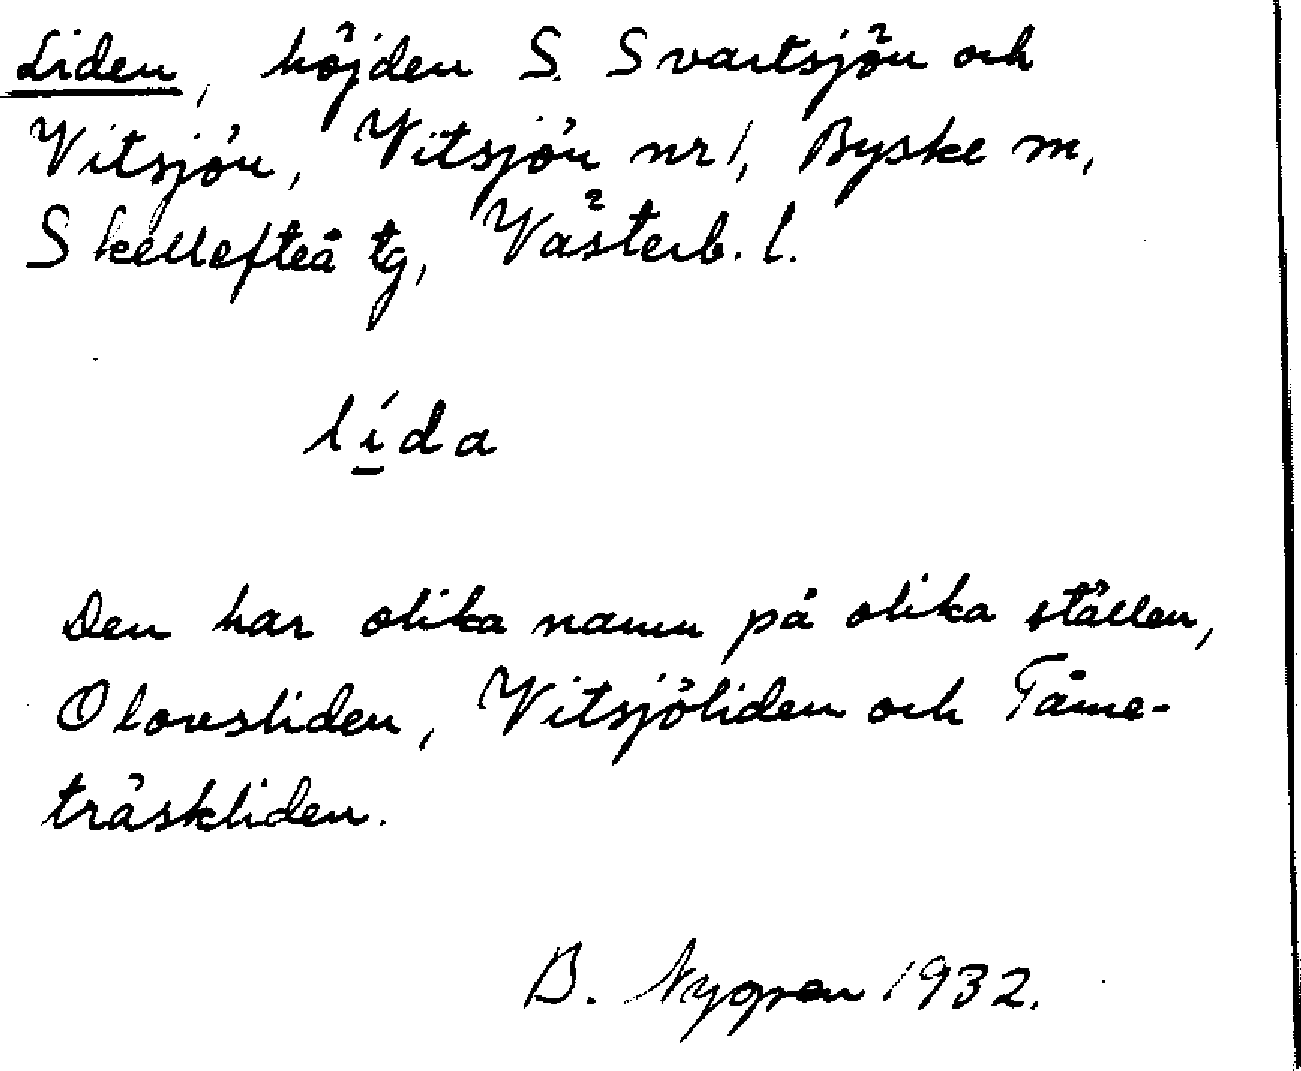 Liden, höjden S. Svartsjön och
Vitsjön, Vitsjön nr 1, Byske sn,
Skellefteå tg, Västerb. l.
lída
Den har olika namn på olika ställen,
Olovsliden, Vitsjöliden och Tåme-
träskliden.
B. Nygren 1932.